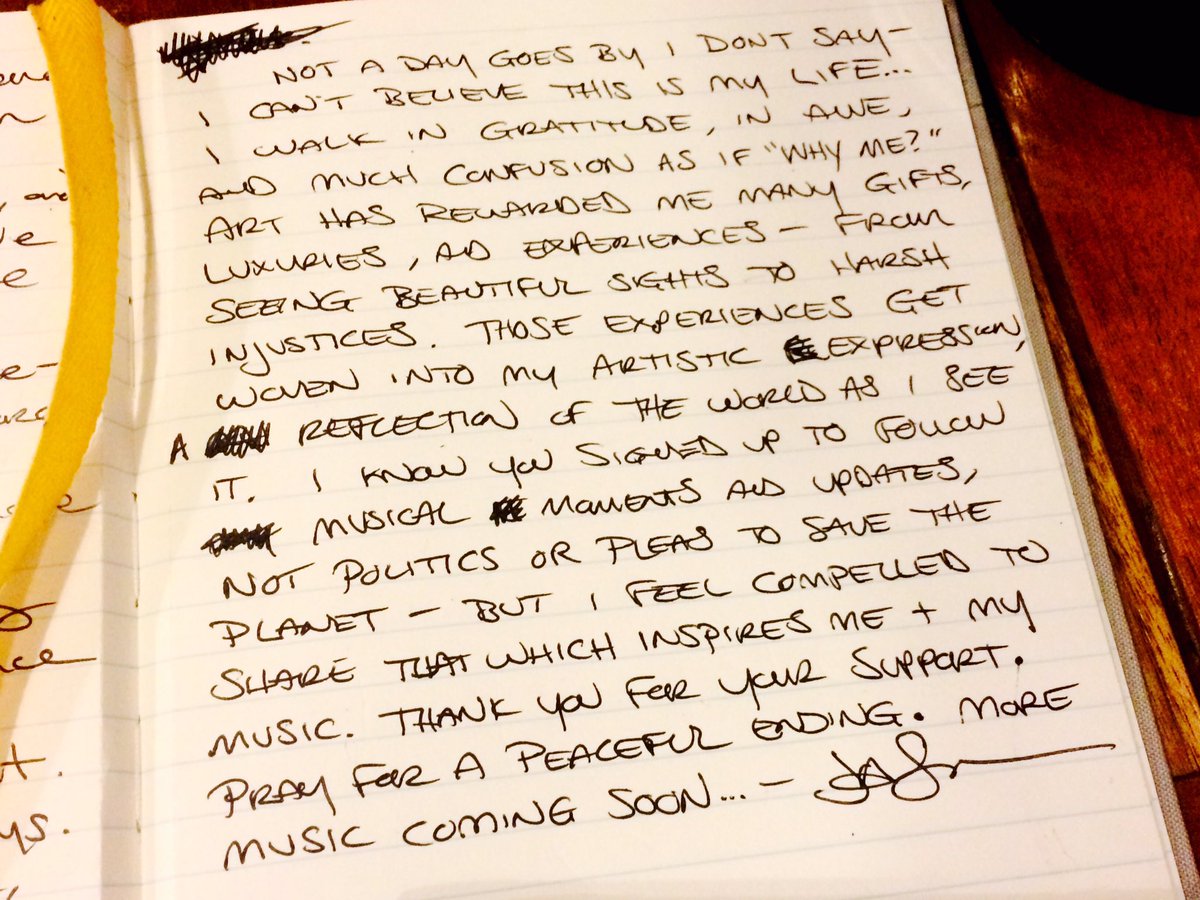 NOT A DAY GOES BY I DONT SAY–
I CAN'T BELIEVE THIS IS MY LIFE...
I WALK IN GRATITUDE, IN AWE,
AND MUCH CONFUSION AS IF "WHY ME?"
ART HAS REWARDED ME MANY GIFTS,
LUXURIES, AD EXPERIENCES – FROM
SEEING BEAUTIFUL SIGHTS TO HARSH
INJUSTICES. THOSE EXPERIENCES GET
WOVEN INTO MY ARTISTIC EXPRESSION,
A REFLECTION OF THE WORLD AS I SEE
IT. I KNOW YOU SIGNED UP TO FOLLOW
MUSICAL MOMENTS AD UPDATES,
NOT POLITICS OR PLEAS TO SAVE THE
PLANET – BUT I FEEL COMPELLED TO
SHARE THAT WHICH INSPIRES ME + MY
MUSIC. THANK YOU FOR YOUR SUPPORT.
PRAY FOR A PEACEFUL ENDING. MORE
MUSIC COMING SOON... –